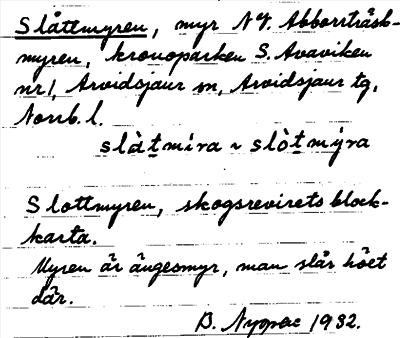 Slåttmyren, myr NV. Abborrträsk-
myren, kronoparken S. Avaviken
nr 1, Arvidsjaur sn, Arvidsjaur tg,
Norrb. l.
slȧ̀t̲míra ~ slòt̲mýra
Slottmyren, skogsrevirets block-
karta.
Myren är ängesmyr, man slår höet
där.
B. 1932.